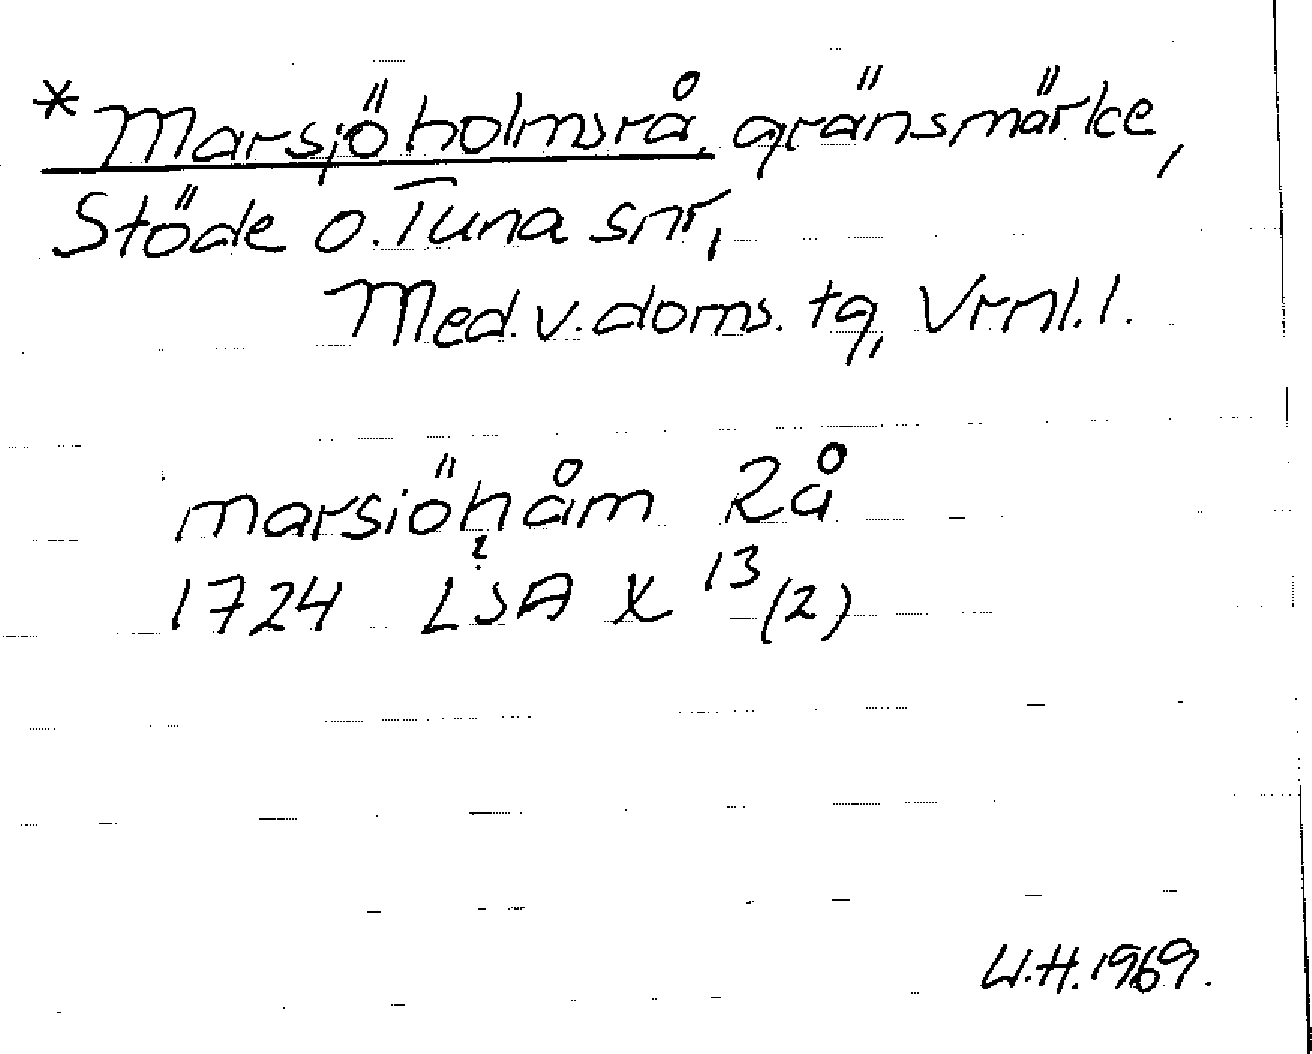 *Marsjöholmsrå, gränsmärke,
Stöde o. Tuna snr,
Med.v.doms.tg, Vrnl.l.
marsiöhåm Rå
?
1724 LSA X 13 (2)
U.H. 1969.